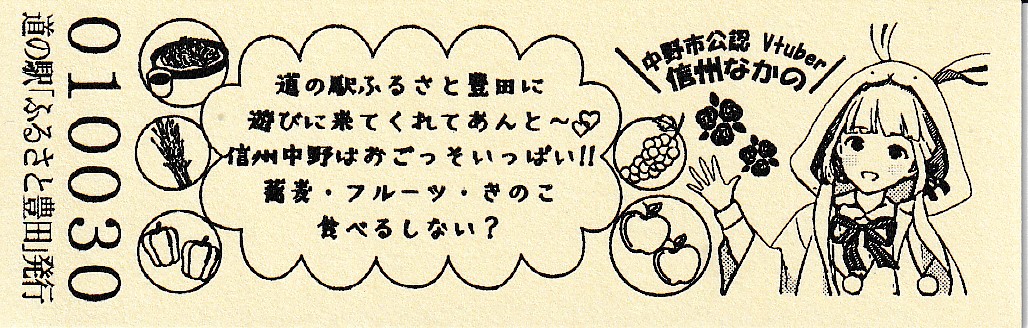 道の駅ふるさと豊田に
遊びに来てくれてあんと～
信州中野はおごっそいっぱい!!
蕎麦・フルーツ・きのこ
食べるしない？
中野市公認 Vtuber
信州なかの
010030
道の駅「ふるさと豊田」発行